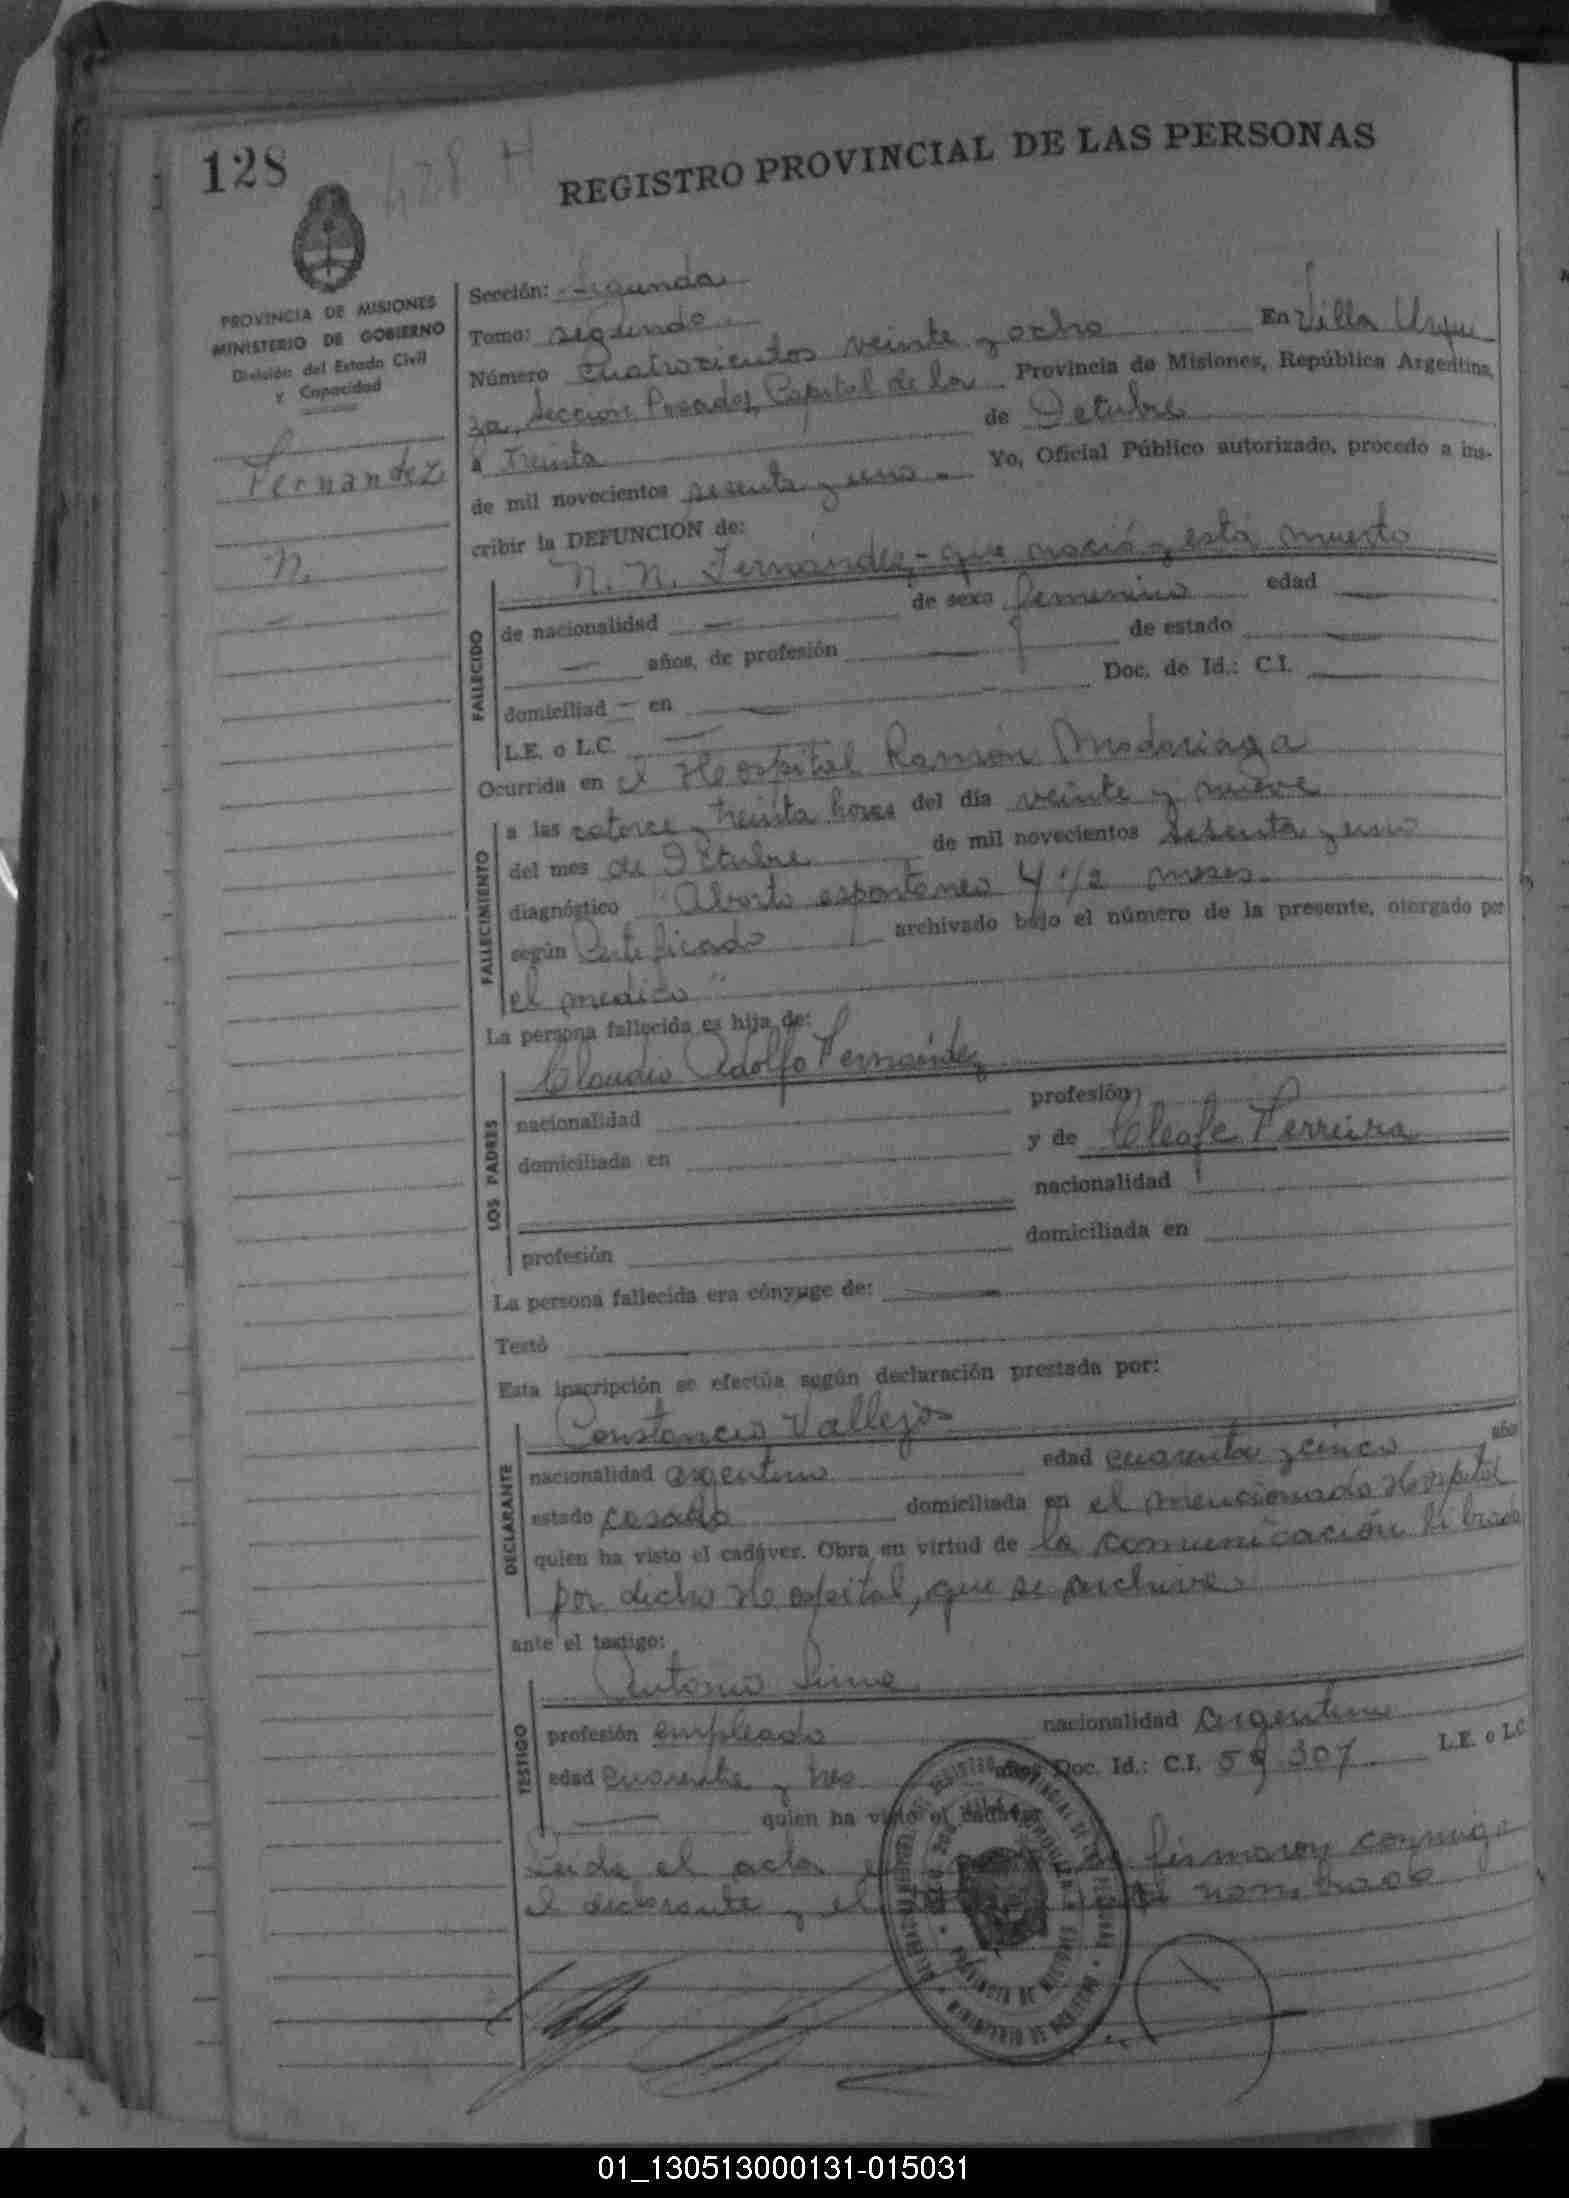 128
428 H
REGISTRO PROVINCIAL DE LAS PERSONAS
PROVINCIA DE MISIONES
MINISTERIO DE GOBIERNO
División del Estado Civil
y Capacidad
Fernandez
N.
Sección: Segunda
Tomo: segundo
Número cuatrocientos veinte y ocho En Villa Urqui
za, Sección Posadas, Capital de la Provincia de Misiones, República Argentina,
a treinta de Octubre
de mil novecientos sesenta y uno. Yo, Oficial Público autorizado, procedo a ins-
cribir la DEFUNCION de:
N. N. Fernández - que nació y está muerto
FALLECIDO
de nacionalidad — de sexo femenino edad —
— años, de profesión — de estado —
domiciliad — en — Doc. de Id.: C.I. —
L.E. o L.C. —
Ocurrida en el Hospital Ramón Madariaga
FALLECIMIENTO
a las catorce y treinta horas del día veinte y nueve
del mes de Octubre de mil novecientos sesenta y uno
diagnóstico "Aborto espontaneo 4 1/2 meses
según Certificado archivado bajo el número de la presente, otorgado por
el medico"
La persona fallecida es hija de:
LOS PADRES
Claudio Adolfo Fernández
nacionalidad profesión
domiciliada en y de Cleofe Ferreira
nacionalidad
profesión domiciliada en
La persona fallecida era cónyuge de: —
Testó —
Esta inscripción se efectúa según declaración prestada por:
DECLARANTE
Constancio Vallejos
nacionalidad argentino edad cuarenta y cinco años
estado casado domiciliada en el mencionado Hospital
quien ha visto el cadáver. Obra en virtud de la comunicación librada
por dicho Hospital, que se archiva
ante el testigo:
TESTIGO
Antonio
profesión empleado nacionalidad argentino
edad cuarenta y tres años Doc. Id.: C.I. 59 307 L.E. o L.C.
— quien ha visto el cadáver
Leida el acta firmaron conmigo
el declarante y el nombrado
PROVINCIA DE MISIONES
MINISTERIO DE GOBIERNO
01_130513000131-015031